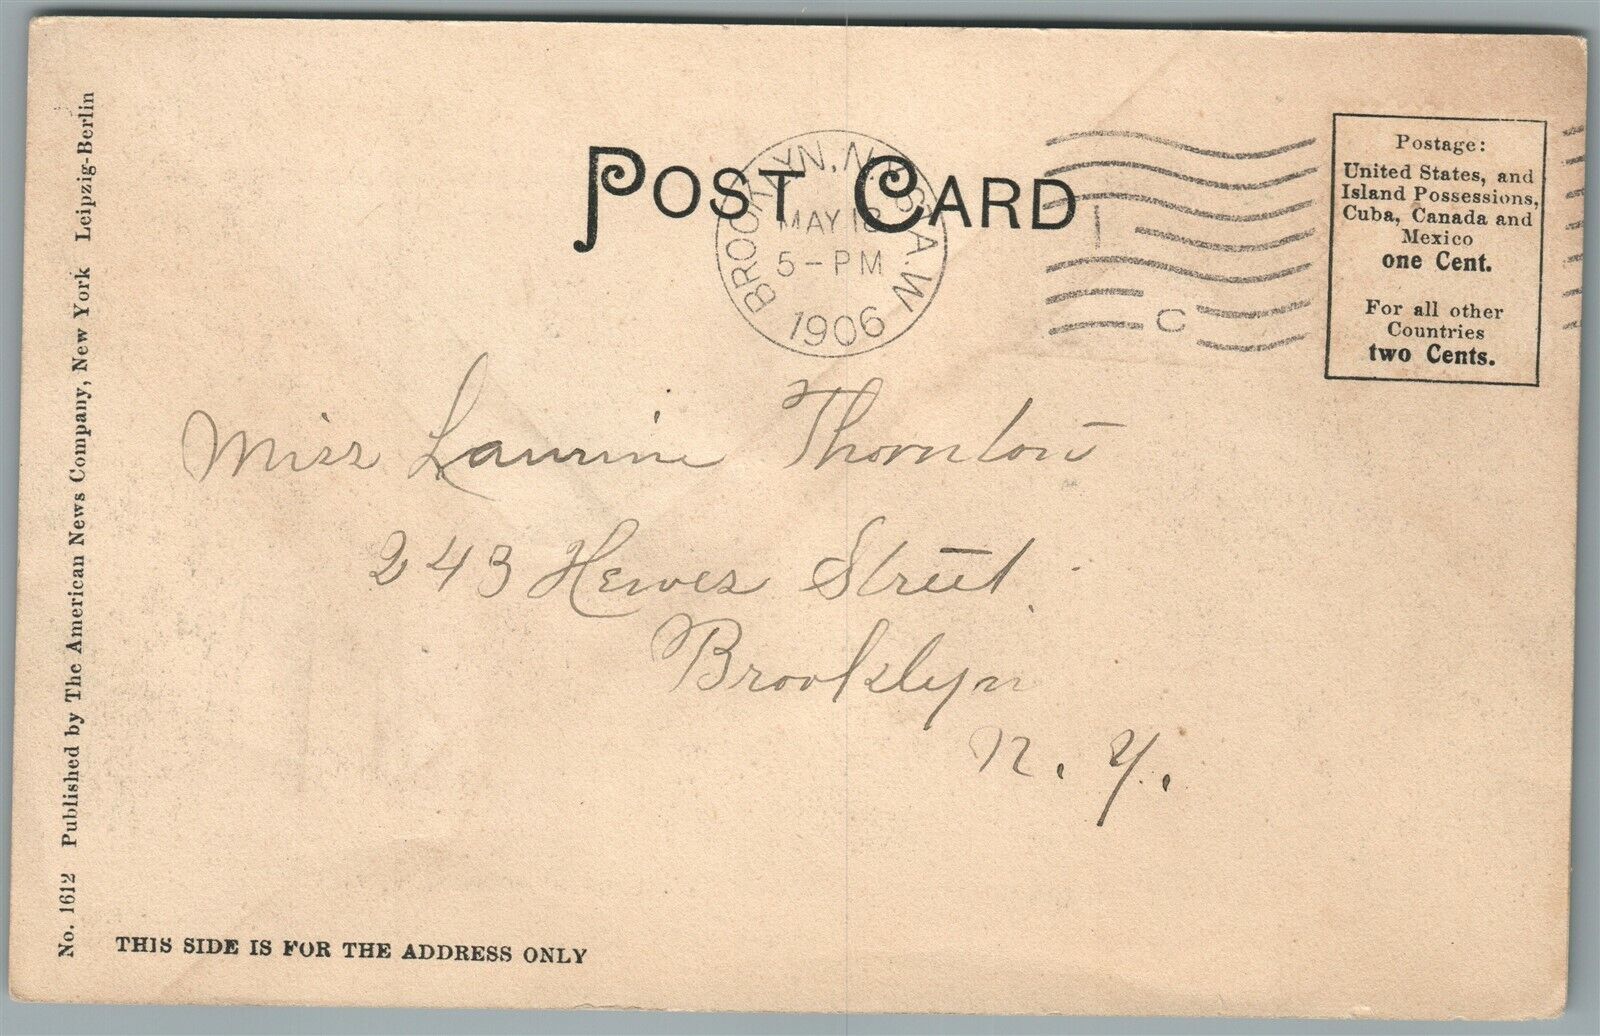 POST CARD
BROOKLYN, N.Y. STA. W.
MAY 18
5-PM
1906
C
Postage:
United States, and
Island Possessions,
Cuba, Canada and
Mexico
one Cent.
For all other
Countries
two Cents.
Miss Laurine Thornton
243 Hewes Street.
Brooklyn
N. Y.
No. 1612 Published by The American News Company, New York Leipzig-Berlin
THIS SIDE IS FOR THE ADDRESS ONLY